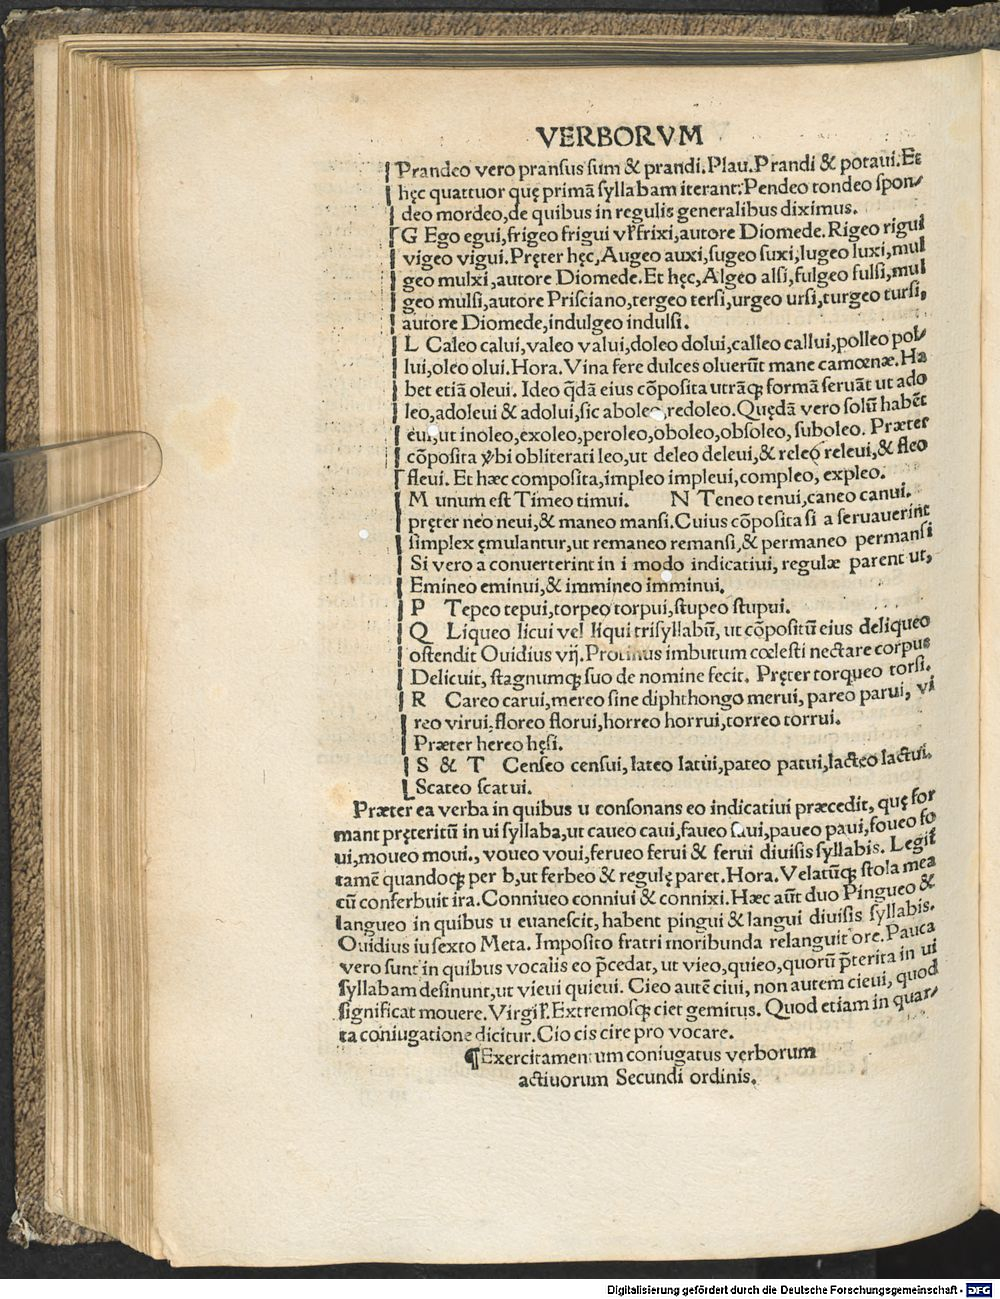 VERBORVM
Prandeo vero pransus sum & prandi. Plau. Prandi & potaui. Et
hęc quattuor quę primā syllabam iterant: Pendeo tondeo spon⸗
deo mordeo, de quibus in regulis generalibus diximus.
G Ego egui, frigeo frigui vł frixi, autore Diomede. Rigeo rigui
vigeo vigui. Pręter hęc, Augeo auxi, sugeo suxi, lugeo luxi, mul
geo mulxi, autore Diomede. Et hęc, Algeo alsi, fulgeo fulsi, mul
geo mulsi, autore Prisciano, tergeo tersi, urgeo ursi, turgeo tursi,
autore Diomede, indulgeo indulsi.
L Caleo calui, valeo valui, doleo dolui, calleo callui, polleo pol⸗
lui, oleo olui. Hora. Vina fere dulces oluerūt mane camœnæ. Ha
bet etiā oleui. Ideo q̄dā eius cōposita utrāqꝫ formā seruāt ut ado
leo, adoleui & adolui, sic aboleo, redoleo. Quędā vero solū habēt
eui, ut inoleo, exoleo, peroleo, oboleo, obsoleo, suboleo. Præter
cōposita v̓bi obliterati leo, ut deleo deleui, & releo releui, & fleo
fleui. Et hæc composita, impleo impleui, compleo, expleo.
M unum est Timeo timui. N Teneo tenui, caneo canui.
pręter neo neui, & maneo mansi. Cuius cōposita si a seruauerint
simplex ęmulantur, ut remaneo remansi, & permaneo permansi
Si vero a conuerterint in i modo indicatiui, regulæ parent ut,
Emineo eminui, & immineo imminui.
P Tepeo tepui, torpeo torpui, stupeo stupui.
Q Liqueo licui vel liqui trisyllabū, ut cōpositū eius deliqueo
ostendit Ouidius vij. Protinus imbutum cœlesti nectare corpus
Delicuit, stagnumqꝫ suo de nomine fecit. Pręter torqueo torsi.
R Careo carui, mereo sine diphthongo merui, pareo parui, vi
reo virui, floreo florui, horreo horrui, torreo torrui.
Præter hereo hęsi.
S & T Censeo censui, lateo latui, pateo patui, lacteo lactui,
Scateo scatui.
Præter ea verba in quibus u consonans eo indicatiui præcedit, quę for
mant pręteritū in ui syllaba, ut caueo caui, faueo faui, paueo paui, foueo fo
ui, moueo moui., voueo voui, ferueo ferui & ferui diuisis syllabis. Legit̄
tamē quandoqꝫ per b, ut ferbeo & regulę paret. Hora. Velatūqꝫ stola mea
cū conferbuit ira. Conniueo conniui & connixi. Hæc aūt duo Pingueo &
langueo in quibus u euanescit, habent pingui & langui diuisis syllabis.
Ouidius iu sexto Meta. Imposito fratri moribunda relanguit ore. Pauca
vero sunt in quibus vocalis eo p̄cedat, ut vieo, quieo, quorū p̄terita in ui
syllabam desinunt, ut vieui quieui. Cieo autē ciui, non autem cieui, quod
significat mouere. Virgił. Extremosqꝫ ciet gemitus. Quod etiam in quar⸗
ta coniugatione dicitur. Cio cis cire pro vocare.
¶Exercitamentum coniugatus verborum
actiuorum Secundi ordinis.
Digitalisierung gefördert durch die Deutsche Forschungsgemeinschaft - DFG